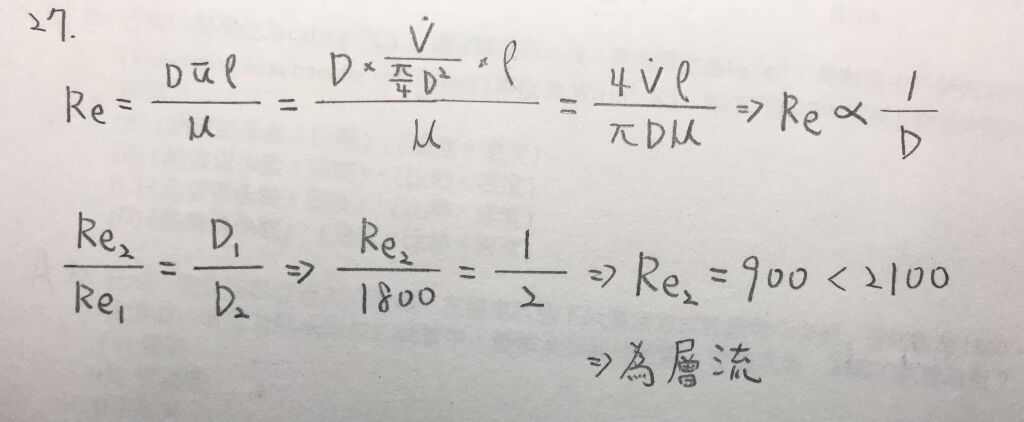 27.
Re = Dūρ/μ = D × V̇/(π/4 D²) × ρ / μ = 4V̇ρ/πDμ ⇒ Re ∝ 1/D
Re₂/Re₁ = D₁/D₂ ⇒ Re₂/1800 = 1/2 ⇒ Re₂ = 900 < 2100
⇒ 為層流